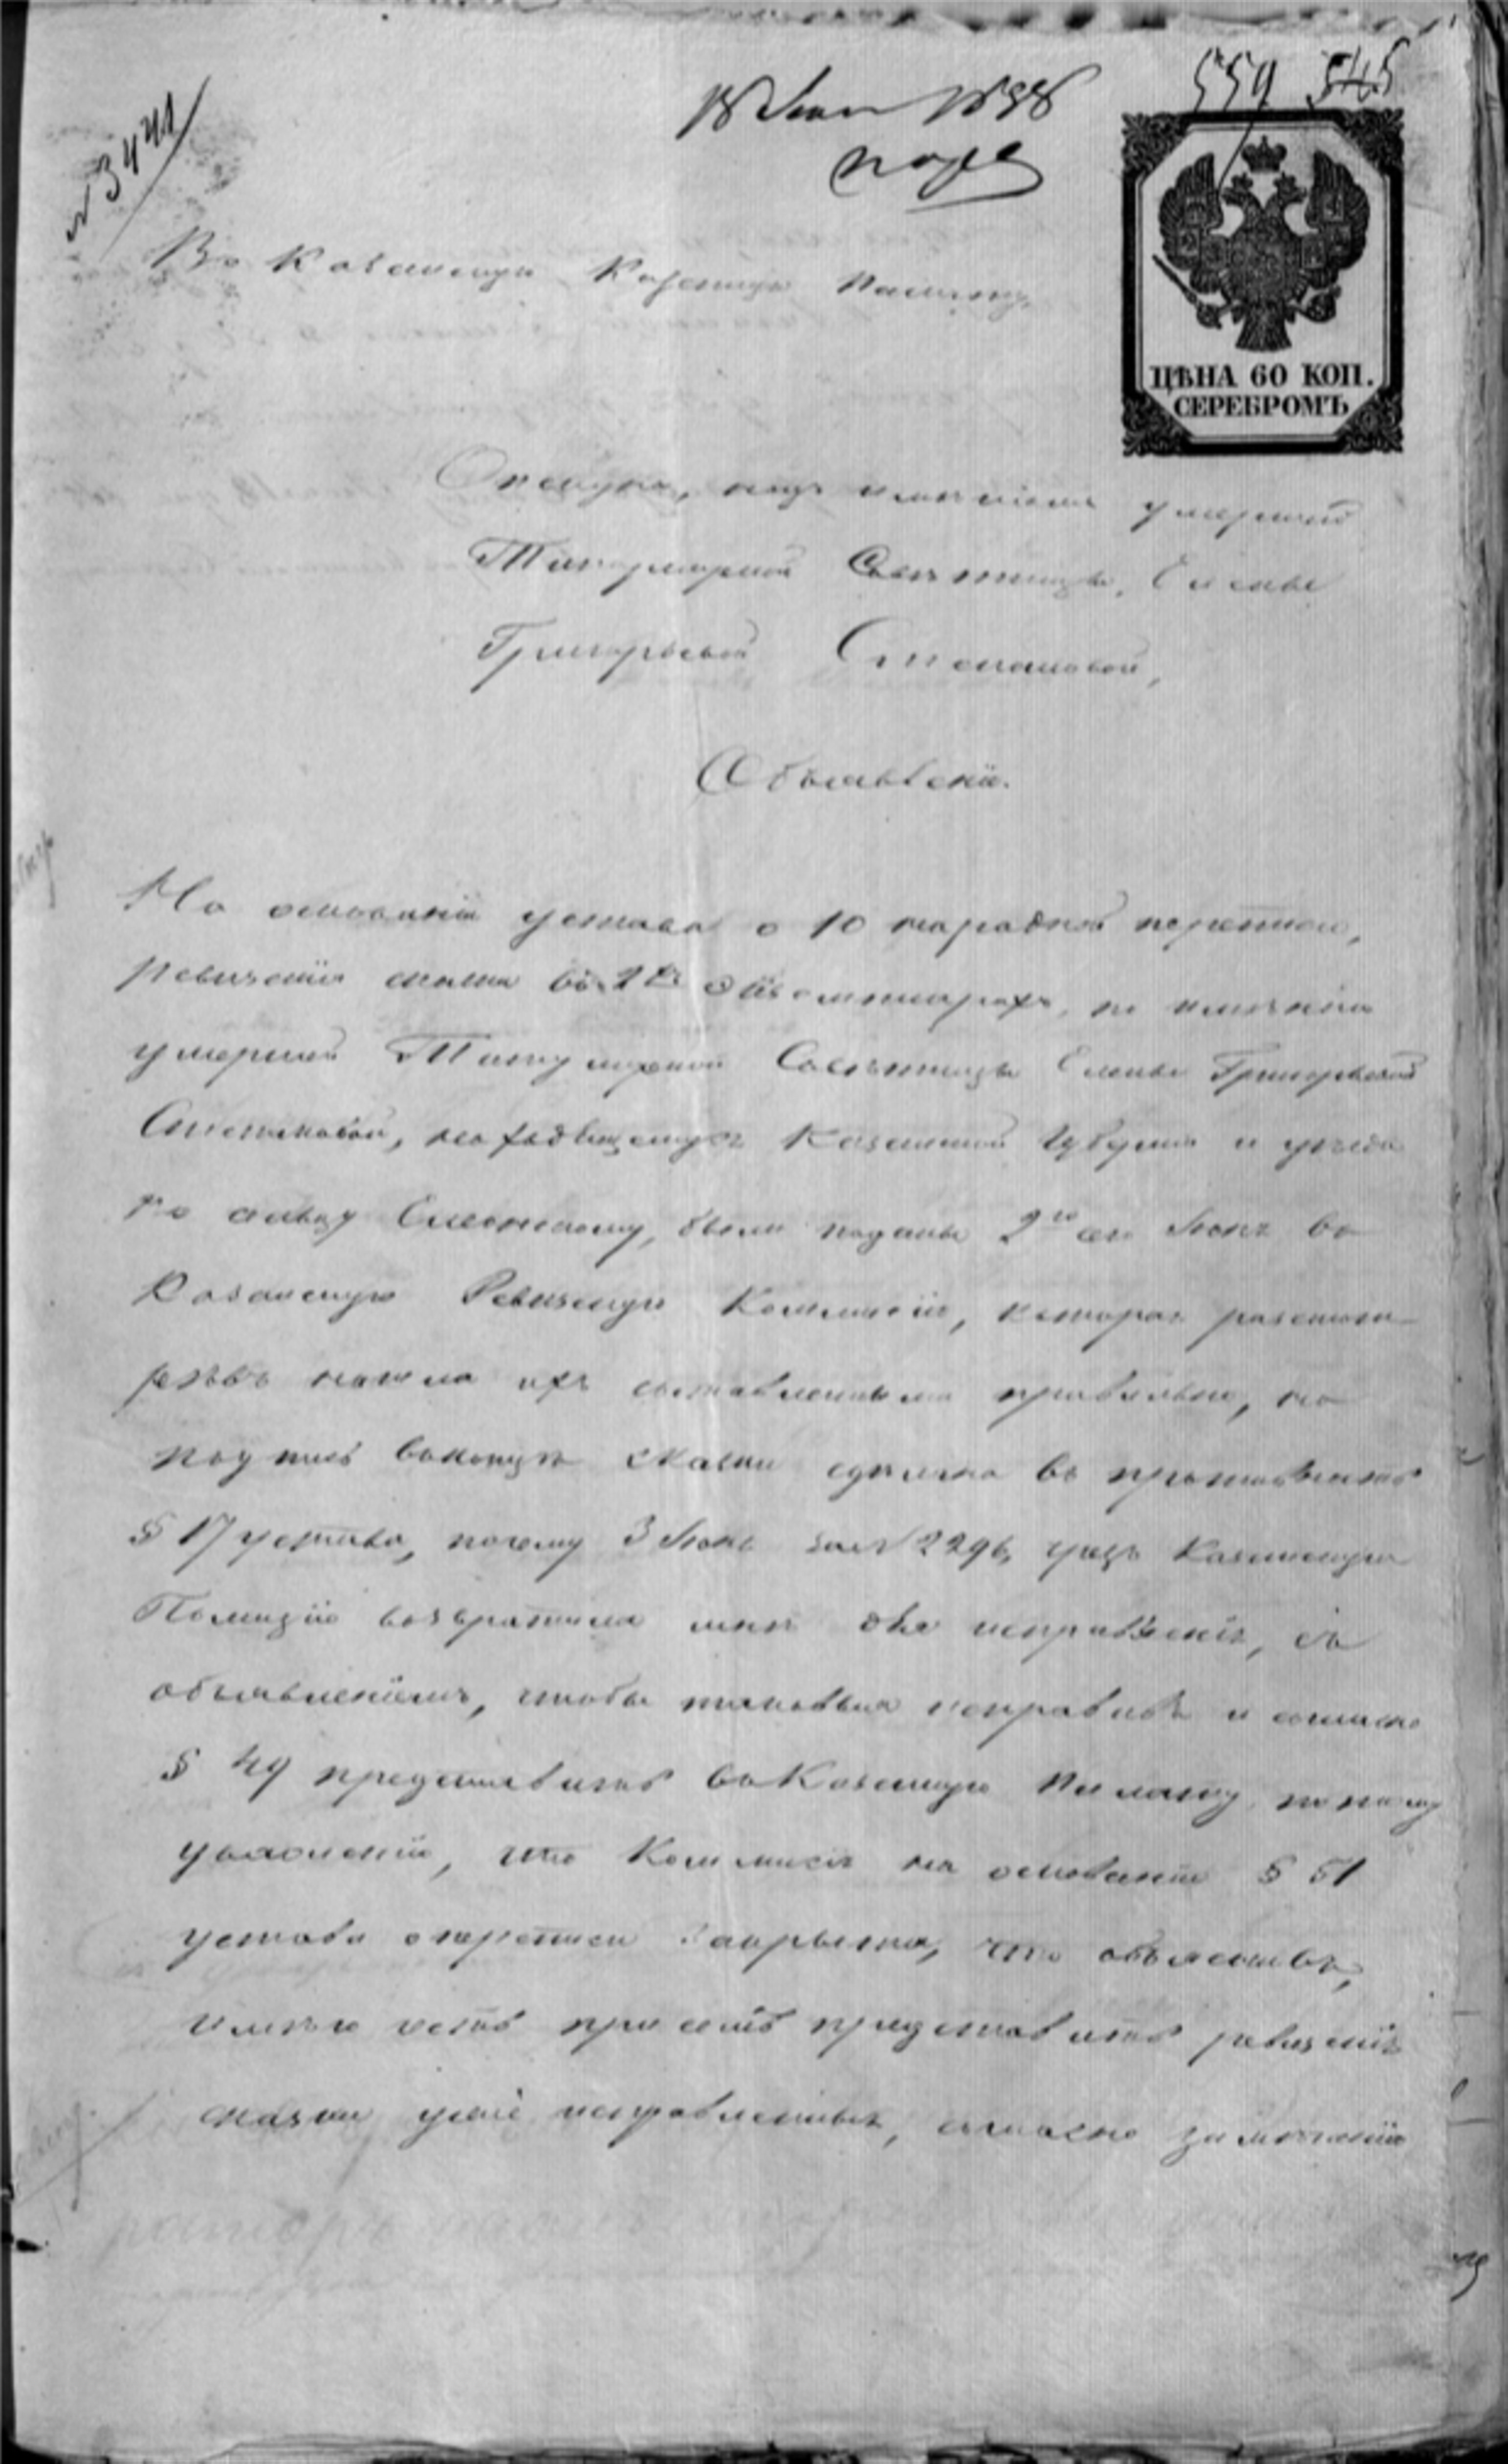 559 545
№ 3441
18 Июн 1858
ЦѢНА 60 КОП.
СЕРЕБРОМЪ
Въ Казанскую Казенную Палату,
Опекуна, надъ имѣніемъ умершей
Титулярной Совѣтницы, Елены
Григорьевой Степановой,
Объявленіе.
На основаніи устава о 10 народной переписи,
ревизскія сказки въ 2хъ экземплярахъ, по имѣнію
умершей Титулярной Совѣтницы Елены Григорьевой
Степановой, находящемуся Казанской Губерніи и уѣзда
по сельцу, были поданы 2го сего Іюня въ
Казанскую Ревизскую Коммисію, которая разсмот
рѣвъ нашла ихъ составленными правильно, но
подпись въ концѣ сказки сдѣлана въ противность
§ 17 устава, почему 3 Іюня за № 2296, чрезъ Казанскую
Полицію возвратила мнѣ для исправленія, съ
объявленіемъ, чтобы таковыя исправивъ и согласно
§ 49 представить въ Казенную Палату, потому
уваженію, что Коммисія на основаніи § 51
устава о переписи закрыта, что объясняя,
имѣю честь при семъ представить ревизскія
сказки уже исправленныя, согласно замѣчанію